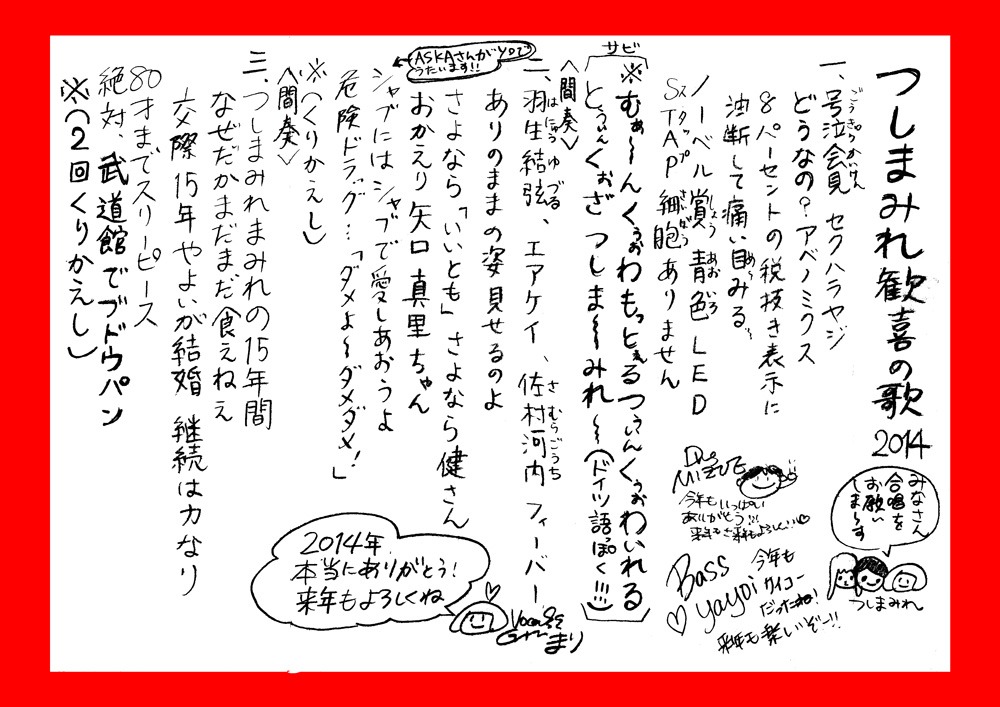 つしまみれ歓喜の歌 2014
みなさん
合唱を
お願い
しま〜す
つしまみれ
一、号泣会見 セクハラヤジ
ごうきゅうかいけん
どうなの?アベノミクス
8パーセントの税抜き表示に
油断して痛い目みる
ノーベル賞 青色 LED
しょう あおいろ
STAP細胞ありません
スタップ さいぼう
サビ
※むぁ〜んくぉわもっとぇるつぃんくぉわいれる
とぅぃんくぉざ つしま〜みれ〜(ドイツ語っぽく!!!)
<間奏>
二、羽生結弦、エアケイ、佐村河内フィーバー
はにゅう ゆづる さむらごうち
ありのままの姿見せるのよ
さよなら「いいとも」さよなら健さん
おかえり矢口真里ちゃん
ASKAさんがYOで
うたいます!!
シャブにはシャブで愛しあおうよ
危険ドラッグ…「ダメよ〜ダメダメ!」
※(くりかえし)
<間奏>
三、つしまみれまみれの15年間
なぜだかまだまだ食えねぇ
交際15年やよいが結婚 継続は力なり
80才までスリーピース
絶対、武道館でブドウパン
※(2回くりかえし)
Drs
MIZUE
今年もいっぱい
ありがとう!!!
来年もよろしく!!♡
Bass
♡yayoi
今年も
サイコー
だったね!
来年も楽しいぞー!!
2014年
本当にありがとう!
来年もよろしくね
Vocal &
Gtr
まり